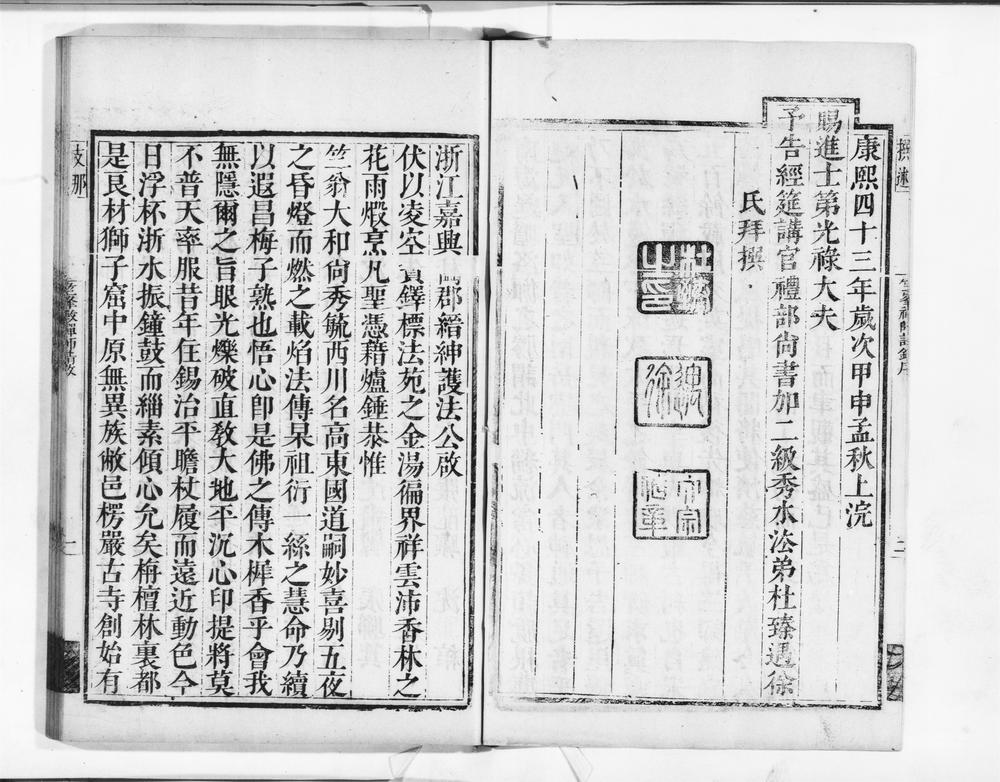 康熙四十三年歲次甲申孟秋上浣
賜進士第光祿大夫
予告經筵講官禮部尚書加二級秀水法弟杜臻遇徐
氏拜撰
浙江嘉興 郡縉紳護法公啟
伏以凌空寶鐸標法苑之金湯徧界祥雲沛香林之
花雨煅烹凡聖憑藉爐錘恭惟
竺翁大和尚秀毓西川名高東國道嗣妙喜剔五夜
之昏燈而燃之載焰法傳杲祖衍一絲之慧命乃續
以遐昌梅子熟也悟心卽是佛之傳木樨香乎會我
無隱爾之旨眼光爍破直教大地平沉心印提將莫
不普天率服昔年住錫治平瞻杖履而遠近動色今
日浮杯浙水振鐘鼓而緇素傾心允矣栴檀林裏都
是良材獅子窟中原無異族敝邑楞嚴古寺創始有